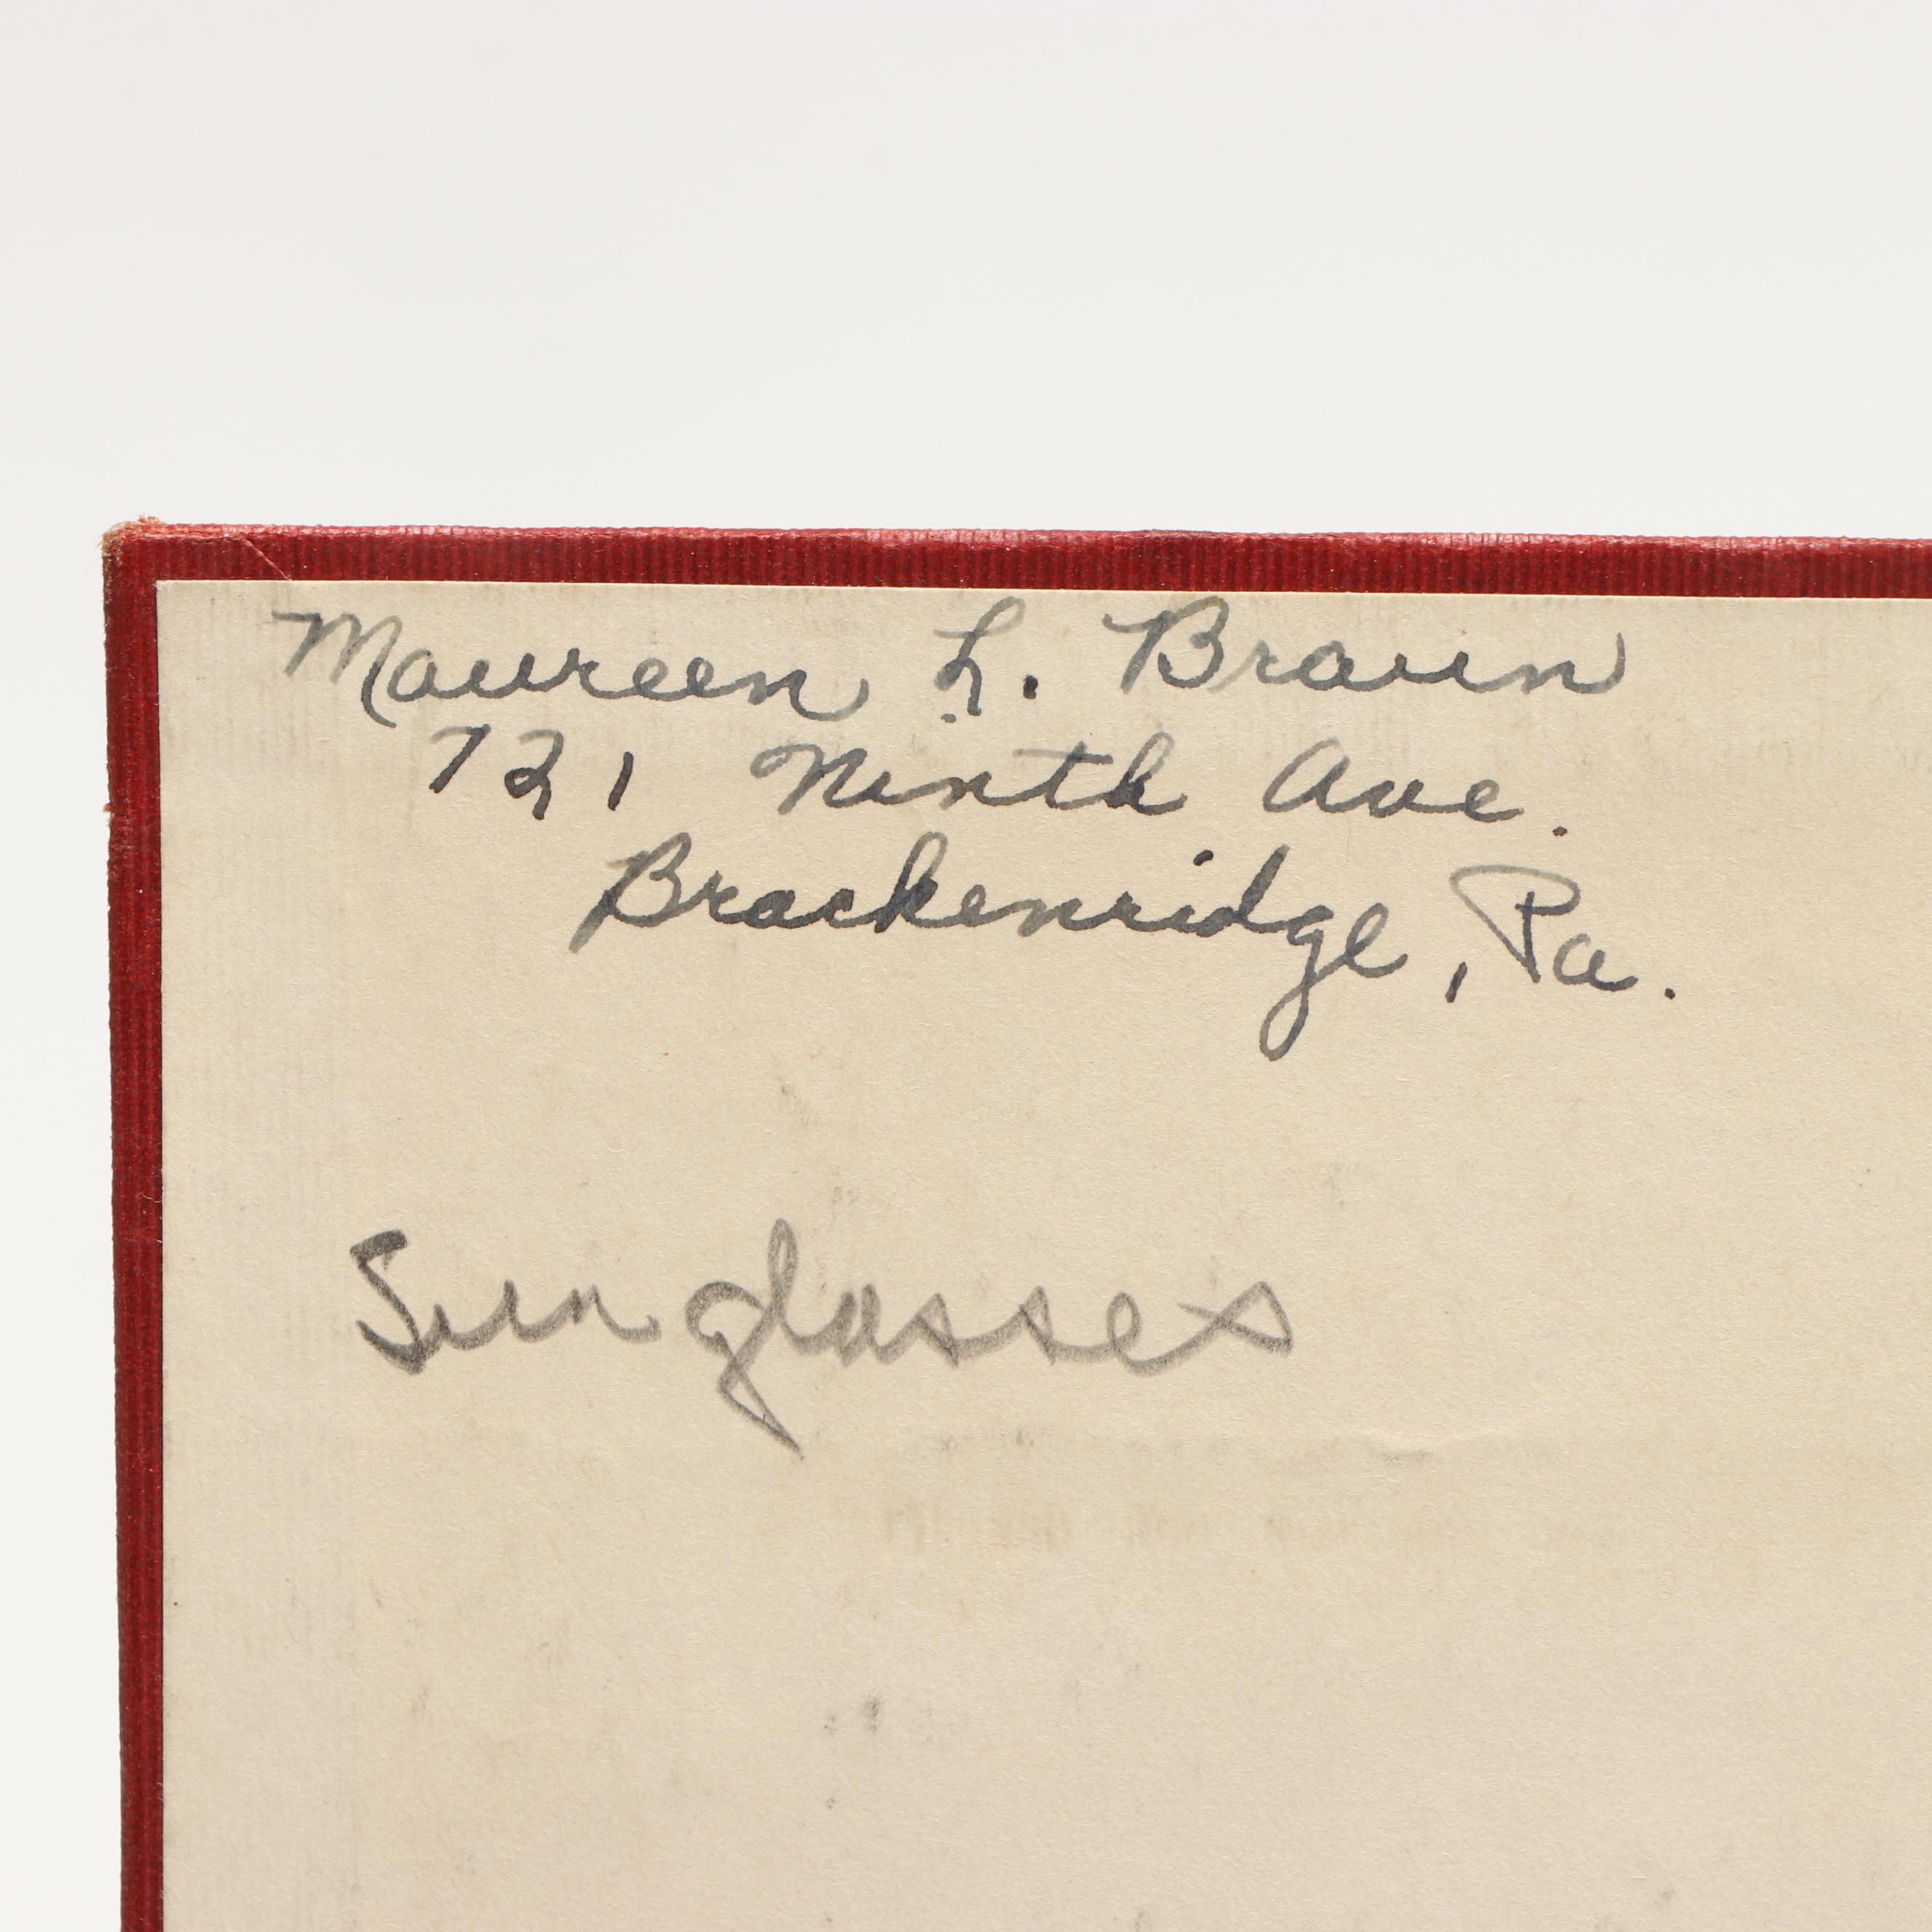 Maureen L. Braun
721 Ninth Ave.
Brackenridge, Pa.
Sunglasses